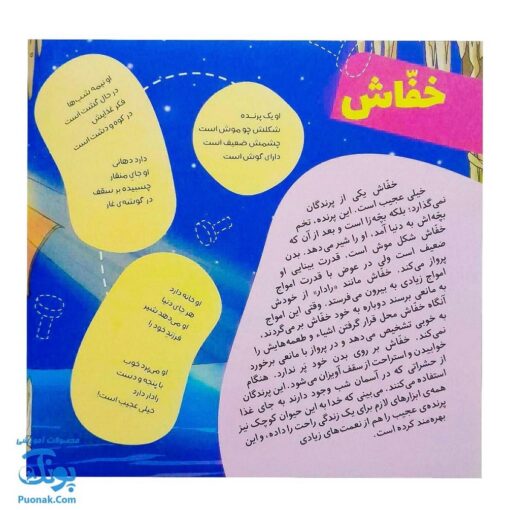 خفّاش
او یک پرنده
شکلش چو موش است
چشمش ضعیف است
دارای گوش است
او نیمه شب‌ها
در حال گشت است
فکر غذایش
در کوه و دشت است
دارد دهانی
او جای منقار
چسبیده بر سقف
در گوشه‌ی غار
او خانه دارد
هر جای دنیا
او می‌دهد شیر
فرزند خود را
او می‌پرد خوب
با پنجه و دست
رادار دارد
خیلی عجیب است!
خفّاش یکی از پرندگان
خیلی عجیب است. این پرنده، تخم
نمی‌گذارد؛ بلکه بچّه‌زا است و بعد از آن که
بچّه‌اش به دنیا آمد، او را شیر می‌دهد. بدن
خفّاش شکل موش است. قدرت بینایی او
ضعیف است ولی در عوض با قدرت امواج
پرواز می‌کند. خفّاش مانند «رادار» از خودش
امواج زیادی به بیرون می‌فرستد. وقتی این امواج
به مانعی برسند دوباره به خود خفّاش بر می‌گردند.
آنگاه خفّاش محل قرار گرفتن اشیاء و طعمه‌هایش را
به خوبی تشخیص می‌دهد و در پرواز با مانعی برخورد
نمی‌کند. خفّاش بر روی بدن خود پر ندارد. هنگام
خوابیدن و استراحت از سقف آویزان می‌شود. این پرندگان
از حشراتی که در آسمان شب وجود دارند به جای غذا
استفاده می‌کنند. می‌بینی که خدا به این حیوان کوچک نیز
همه‌ی ابزارهای لازم برای یک زندگی راحت را داده، و این
پرنده‌ی عجیب را هم از نعمت‌های زیادی
بهره‌مند کرده است.
محصولات آموزشی
پونک
Puonak.Com